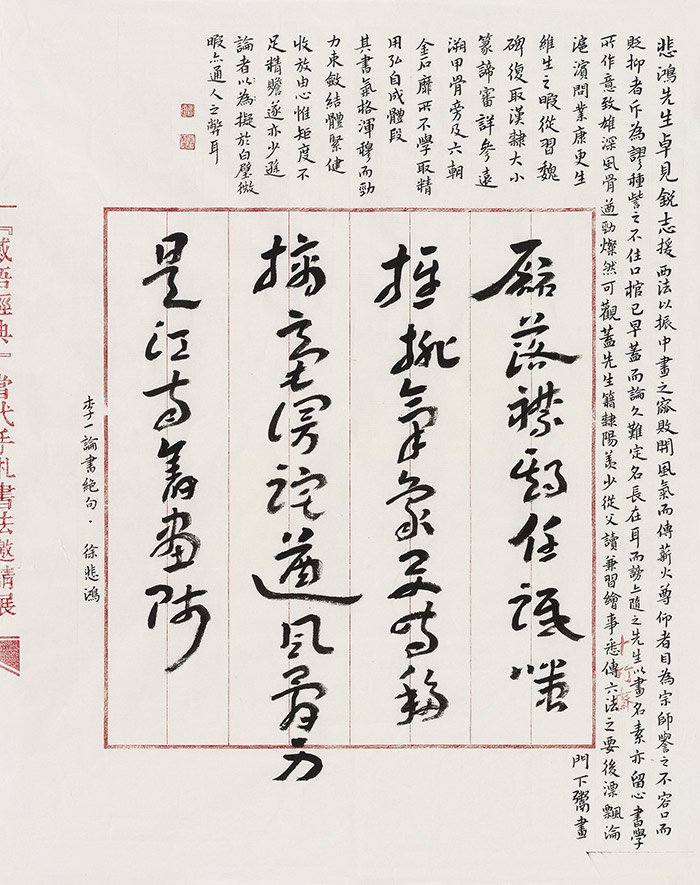 悲鴻先生卓見銳志援西法以振中畫之窳敗開風氣而傳薪火尊仰者目為宗師譽之不容口而
貶抑者斥為謬種訾之不住口棺已早蓋而論久難定名長在耳而謗亦隨之先生以畫名素亦留心書學
所作意致雄深風骨遒勁燦然可觀蓋先生籍隸陽羨少從父讀兼習繪事悉傳六法之要後漂飄淪
滬濱問業康更生門下鬻畫
維生之暇從習魏
碑復取漢隸大小
篆諦審詳參遠
溯甲骨旁及六朝
金石靡所不學取精
用弘自成體段
其書氣格渾穆而勁
力束斂結體緊健
收放由心惟矩度不
足精贍遂亦少遜
論者以為擬於白璧微
暇亦通人之弊耳
磊落襟懷任詆嗤
推排氣象與時移
摛毫謾詫遒風骨乃
是江南舊畫師
李一論書絕句·徐悲鴻
『感悟經典』當代手札書法邀請展
十竹齋